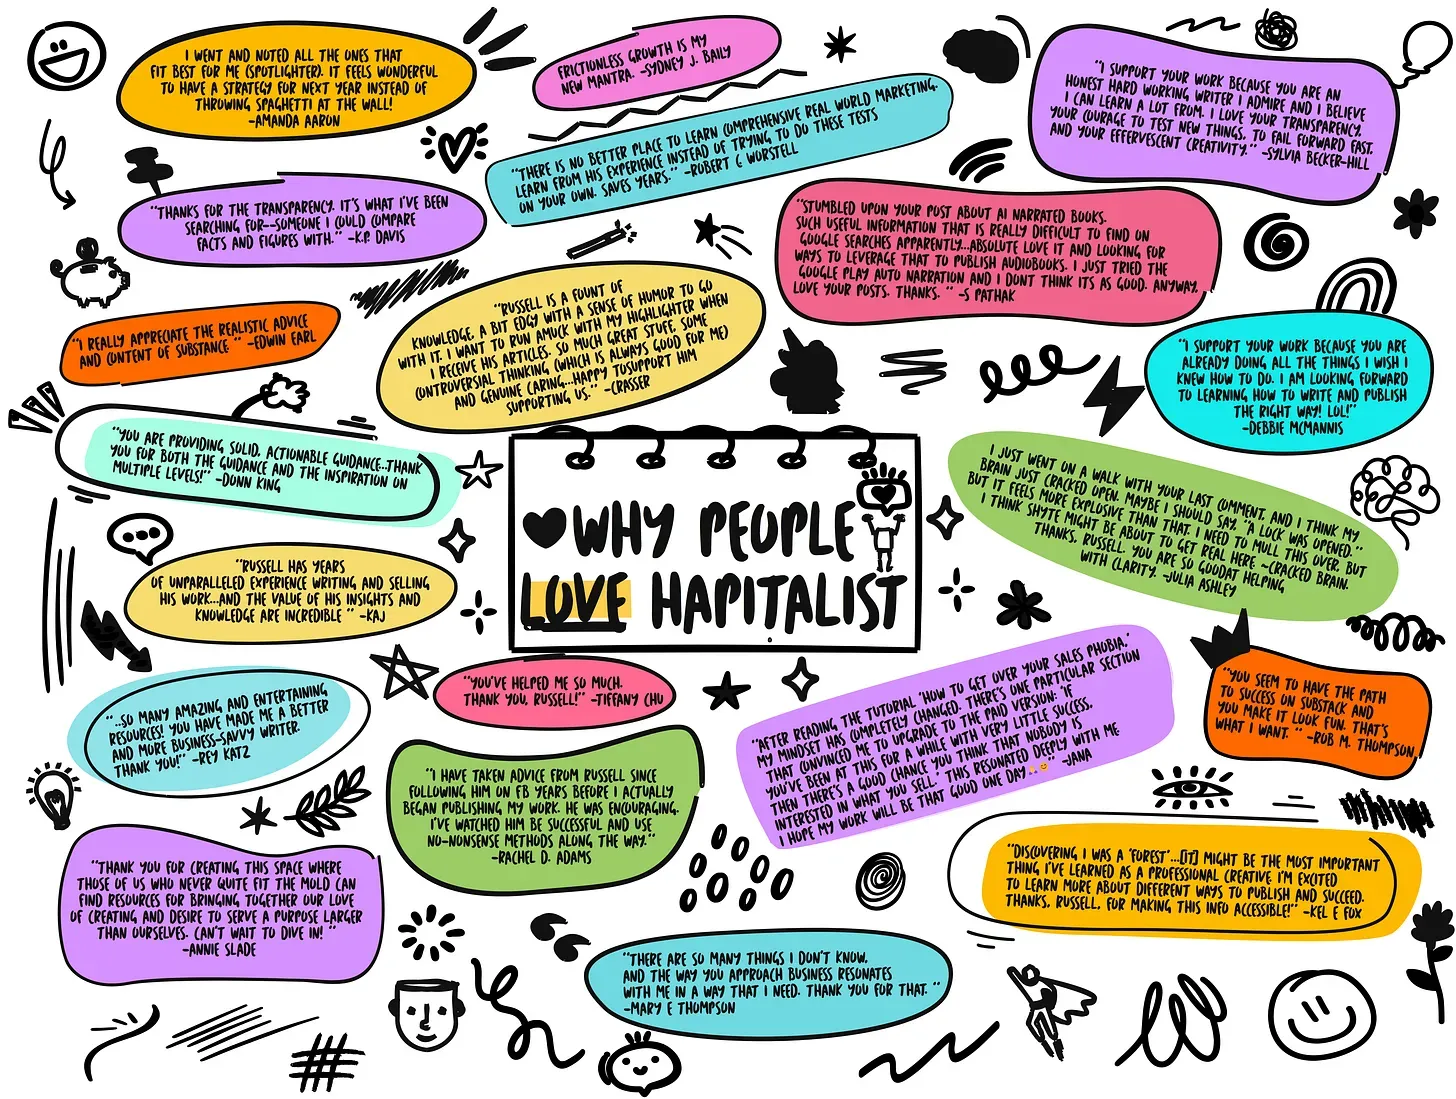 I WENT AND NOTED ALL THE ONES THAT
FIT BEST FOR ME (SPOTLIGHTER). IT FEELS WONDERFUL
TO HAVE A STRATEGY FOR NEXT YEAR INSTEAD OF
THROWING SPAGHETTI AT THE WALL!
-AMANDA AARON
FRICTIONLESS GROWTH IS MY
NEW MANTRA. -SYDNEY J. BAILY
"THERE IS NO BETTER PLACE TO LEARN COMPREHENSIVE REAL WORLD MARKETING.
LEARN FROM HIS EXPERIENCE INSTEAD OF TRYING TO DO THESE TESTS
ON YOUR OWN. SAVES YEARS." -ROBERT C WORSTELL
"I SUPPORT YOUR WORK BECAUSE YOU ARE AN
HONEST HARD WORKING WRITER I ADMIRE AND I BELIEVE
I CAN LEARN A LOT FROM. I LOVE YOUR TRANSPARENCY,
YOUR COURAGE TO TEST NEW THINGS, TO FAIL FORWARD FAST,
AND YOUR EFFERVESCENT CREATIVITY." -SYLVIA BECKER-HILL
"THANKS FOR THE TRANSPARENCY. IT'S WHAT I'VE BEEN
SEARCHING FOR--SOMEONE I COULD COMPARE
FACTS AND FIGURES WITH." -K.P. DAVIS
"STUMBLED UPON YOUR POST ABOUT AI NARRATED BOOKS.
SUCH USEFUL INFORMATION THAT IS REALLY DIFFICULT TO FIND ON
GOOGLE SEARCHES APPARENTLY...ABSOLUTE LOVE IT AND LOOKING FOR
WAYS TO LEVERAGE THAT TO PUBLISH AUDIOBOOKS. I JUST TRIED THE
GOOGLE PLAY AUTO NARRATION AND I DONT THINK ITS AS GOOD. ANYWAY,
LOVE YOUR POSTS. THANKS. " -S PATHAK
"I REALLY APPRECIATE THE REALISTIC ADVICE
AND CONTENT OF SUBSTANCE " -EDWIN EARL
"RUSSELL IS A FOUNT OF
KNOWLEDGE, A BIT EDGY WITH A SENSE OF HUMOR TO GO
WITH IT. I WANT TO RUN AMUCK WITH MY HIGHLIGHTER WHEN
I RECEIVE HIS ARTICLES. SO MUCH GREAT STUFF, SOME
CONTROVERSIAL THINKING (WHICH IS ALWAYS GOOD FOR ME)
AND GENUINE CARING...HAPPY TOSUPPORT HIM
SUPPORTING US." -CRASSER
"I SUPPORT YOUR WORK BECAUSE YOU ARE
ALREADY DOING ALL THE THINGS I WISH I
KNEW HOW TO DO. I AM LOOKING FORWARD
TO LEARNING HOW TO WRITE AND PUBLISH
THE RIGHT WAY! LOL!"
-DEBBIE MCMANNIS
"YOU ARE PROVIDING SOLID, ACTIONABLE GUIDANCE..THANK
YOU FOR BOTH THE GUIDANCE AND THE INSPIRATION ON
MULTIPLE LEVELS!" -DONN KING
WHY PEOPLE
LOVE HAPITALIST
I JUST WENT ON A WALK WITH YOUR LAST COMMENT, AND I THINK MY
BRAIN JUST CRACKED OPEN. MAYBE I SHOULD SAY, "A LOCK WAS OPENED."
BUT IT FEELS MORE EXPLOSIVE THAN THAT. I NEED TO MULL THIS OVER, BUT
I THINK SHYTE MIGHT BE ABOUT TO GET REAL HERE ~CRACKED BRAIN.
THANKS, RUSSELL. YOU ARE SO GOODAT HELPING
WITH CLARITY. -JULIA ASHLEY
"RUSSELL HAS YEARS
OF UNPARALLELED EXPERIENCE WRITING AND SELLING
HIS WORK...AND THE VALUE OF HIS INSIGHTS AND
KNOWLEDGE ARE INCREDIBLE " -KAJ
"..SO MANY AMAZING AND ENTERTAINING
RESOURCES! YOU HAVE MADE ME A BETTER
AND MORE BUSINESS-SAVVY WRITER.
THANK YOU!" -REY KATZ
"YOU'VE HELPED ME SO MUCH.
THANK YOU, RUSSELL!" -TIFFANY CHU
"AFTER READING THE TUTORIAL 'HOW TO GET OVER YOUR SALES PHOBIA,'
MY MINDSET HAS COMPLETELY CHANGED. THERE'S ONE PARTICULAR SECTION
THAT CONVINCED ME TO UPGRADE TO THE PAID VERSION: 'IF
YOU'VE BEEN AT THIS FOR A WHILE WITH VERY LITTLE SUCCESS,
THEN THERE'S A GOOD CHANCE YOU THINK THAT NOBODY IS
INTERESTED IN WHAT YOU SELL.' THIS RESONATED DEEPLY WITH ME
I HOPE MY WORK WILL BE THAT GOOD ONE DAY🙏😊" -JANA
"YOU SEEM TO HAVE THE PATH
TO SUCCESS ON SUBSTACK AND
YOU MAKE IT LOOK FUN. THAT'S
WHAT I WANT. " -ROB M. THOMPSON,
"I HAVE TAKEN ADVICE FROM RUSSELL SINCE
FOLLOWING HIM ON FB YEARS BEFORE I ACTUALLY
BEGAN PUBLISHING MY WORK. HE WAS ENCOURAGING.
I'VE WATCHED HIM BE SUCCESSFUL AND USE
NO-NONSENSE METHODS ALONG THE WAY."
-RACHEL D. ADAMS
"THANK YOU FOR CREATING THIS SPACE WHERE
THOSE OF US WHO NEVER QUITE FIT THE MOLD CAN
FIND RESOURCES FOR BRINGING TOGETHER OUR LOVE
OF CREATING AND DESIRE TO SERVE A PURPOSE LARGER
THAN OURSELVES. CAN'T WAIT TO DIVE IN! "
-ANNIE SLADE
"DISCOVERING I WAS A 'FOREST'...[IT] MIGHT BE THE MOST IMPORTANT
THING I'VE LEARNED AS A PROFESSIONAL CREATIVE I'M EXCITED
TO LEARN MORE ABOUT DIFFERENT WAYS TO PUBLISH AND SUCCEED.
THANKS, RUSSELL, FOR MAKING THIS INFO ACCESSIBLE!" -KEL E FOX
"THERE ARE SO MANY THINGS I DON'T KNOW,
AND THE WAY YOU APPROACH BUSINESS RESONATES
WITH ME IN A WAY THAT I NEED. THANK YOU FOR THAT. "
-MARY E THOMPSON